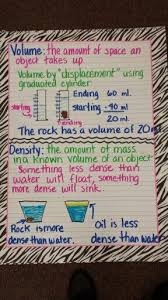 Volume: the amount of space an
object takes up.
Volume by "displacement" using
graduated cylinder
starting
ending
Ending 60 ml.
starting - 40 ml
20 ml.
The rock has a volume of 20ml
Density: the amount of mass
in a known volume of an object
Something less dense than
water will float, something
more dense will sink.
Rock is more
dense than water.
Oil is less
dense than water